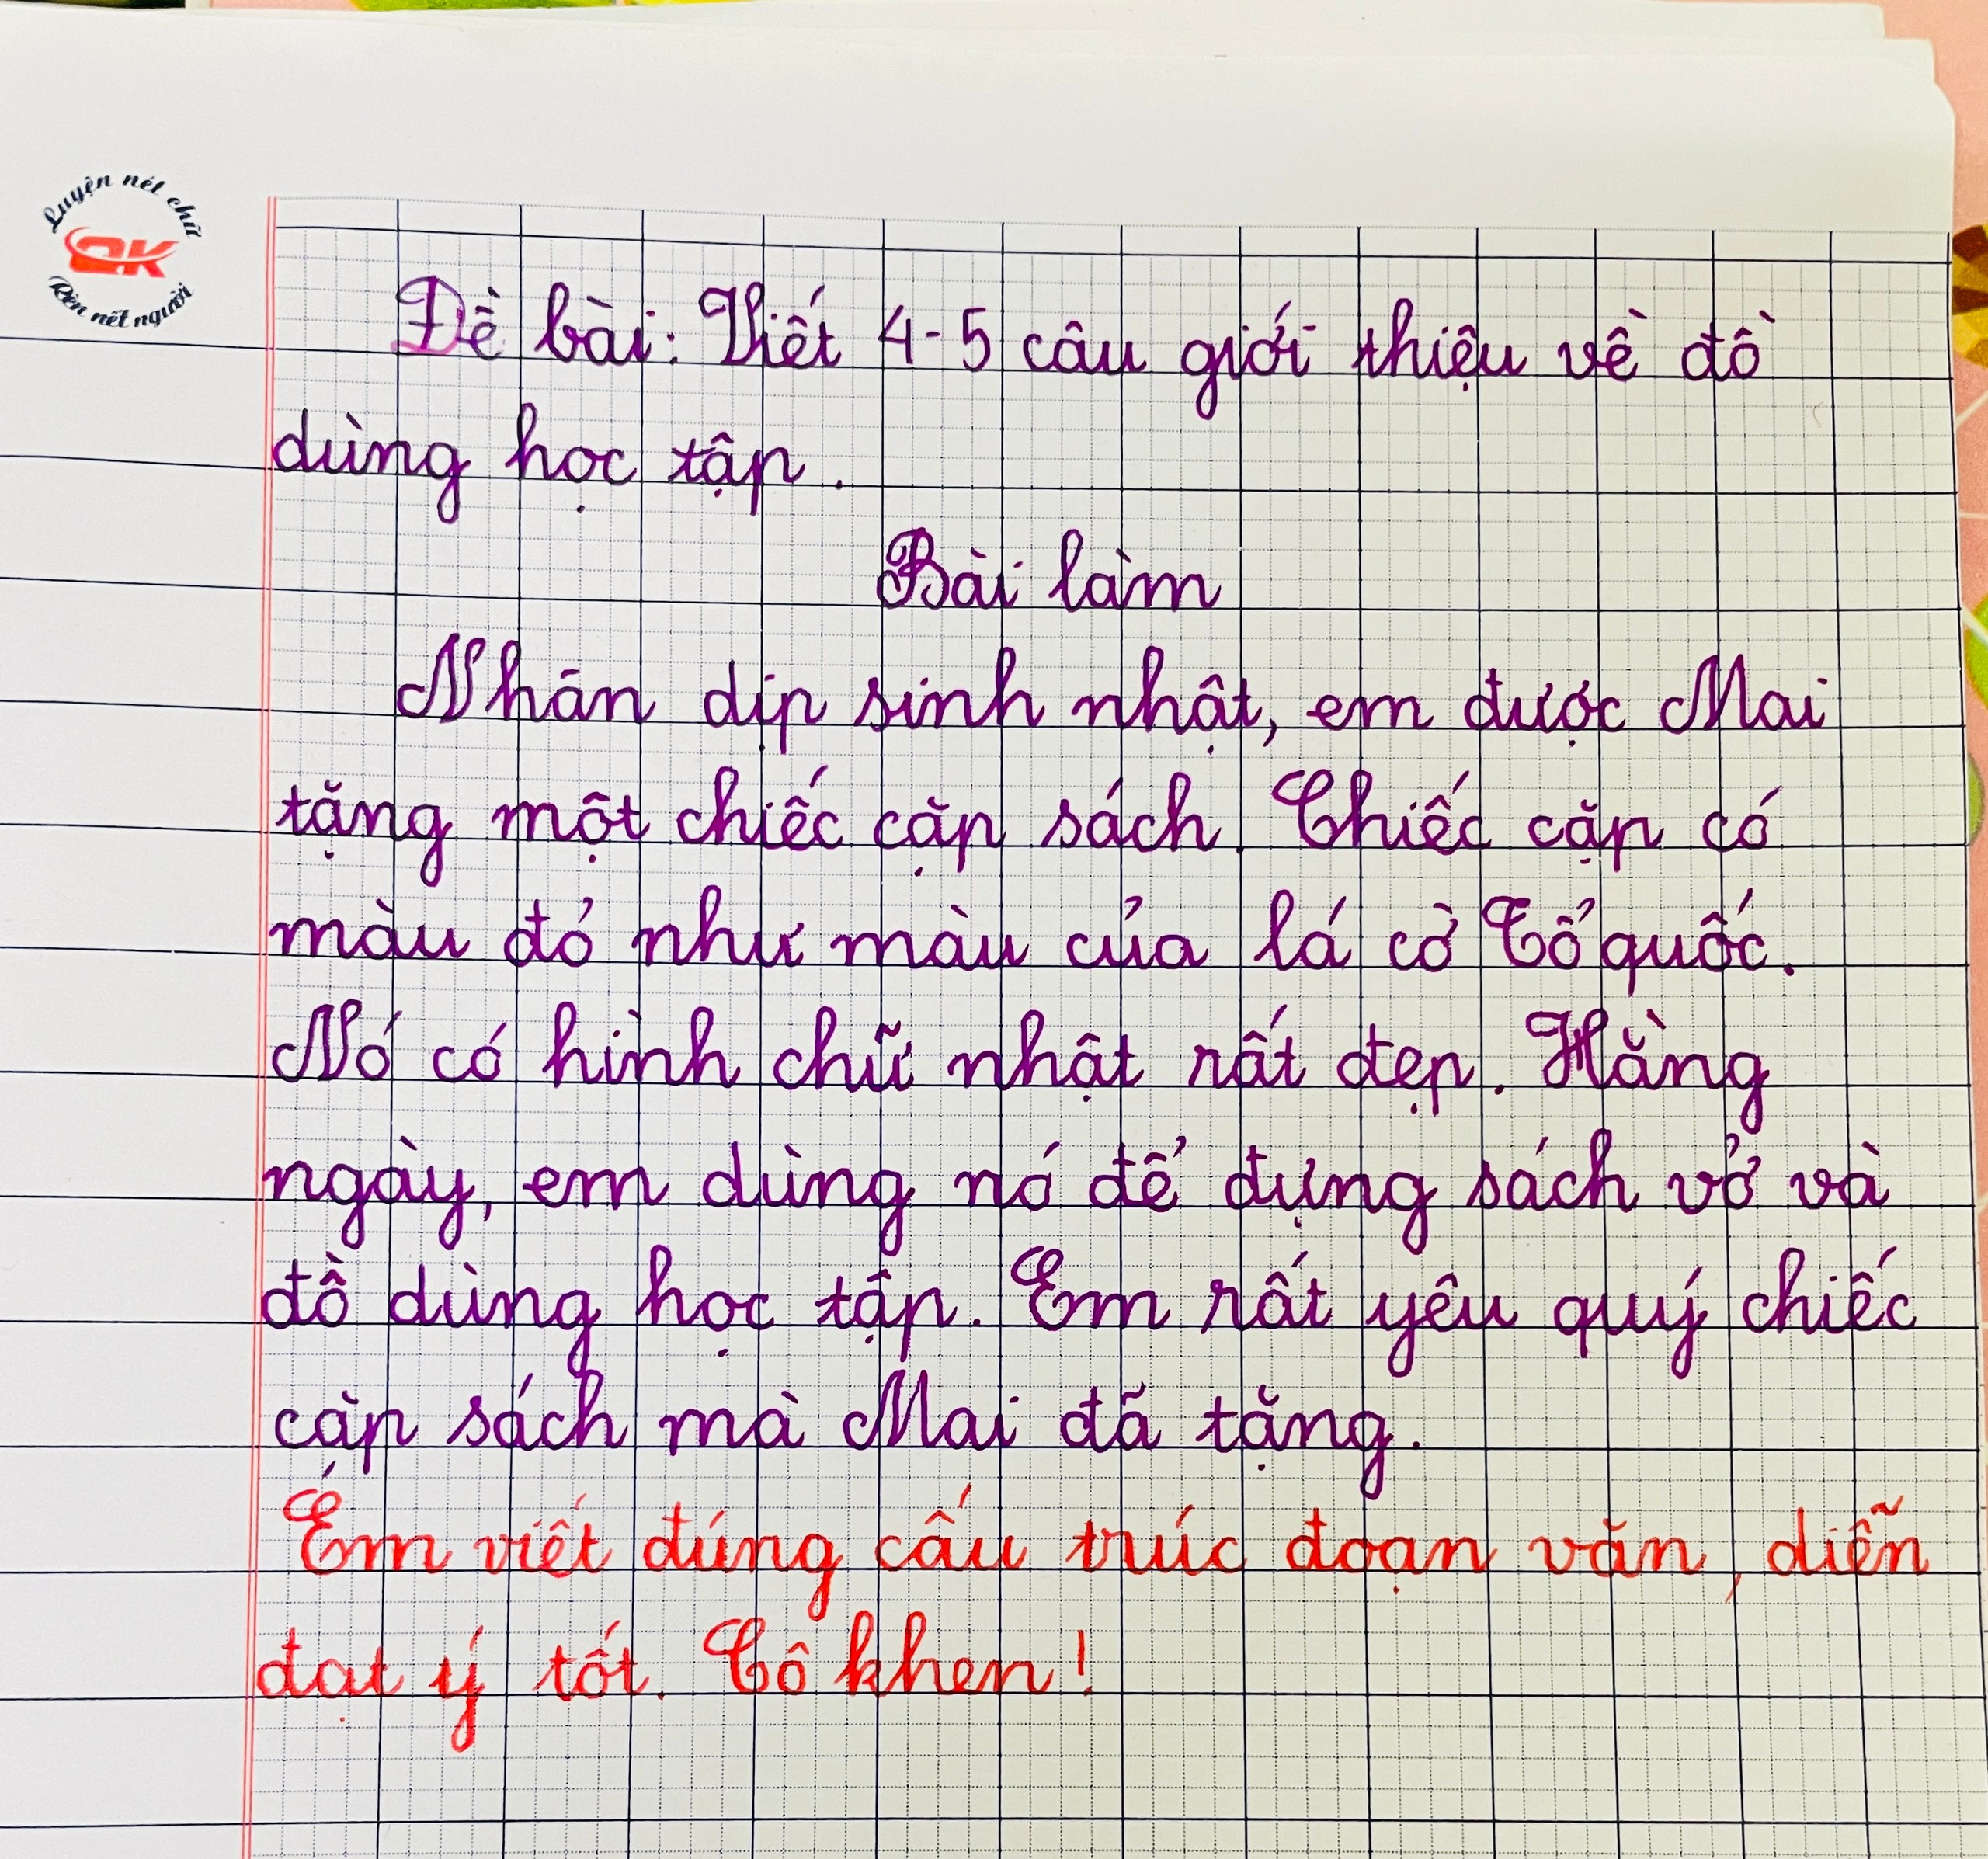 Luyện nét chữ
QK
Rèn nết người
Đề bài: Viết 4-5 câu giới thiệu về đồ
dùng học tập.
Bài làm
Nhân dịp sinh nhật, em được Mai
tặng một chiếc cặp sách. Chiếc cặp có
màu đỏ như màu của lá cờ Tổ quốc.
Nó có hình chữ nhật rất đẹp. Hằng
ngày, em dùng nó để đựng sách vở và
đồ dùng học tập. Em rất yêu quý chiếc
cặp sách mà Mai đã tặng.
Em viết đúng cấu trúc đoạn văn, diễn
đạt ý tốt. Cô khen!